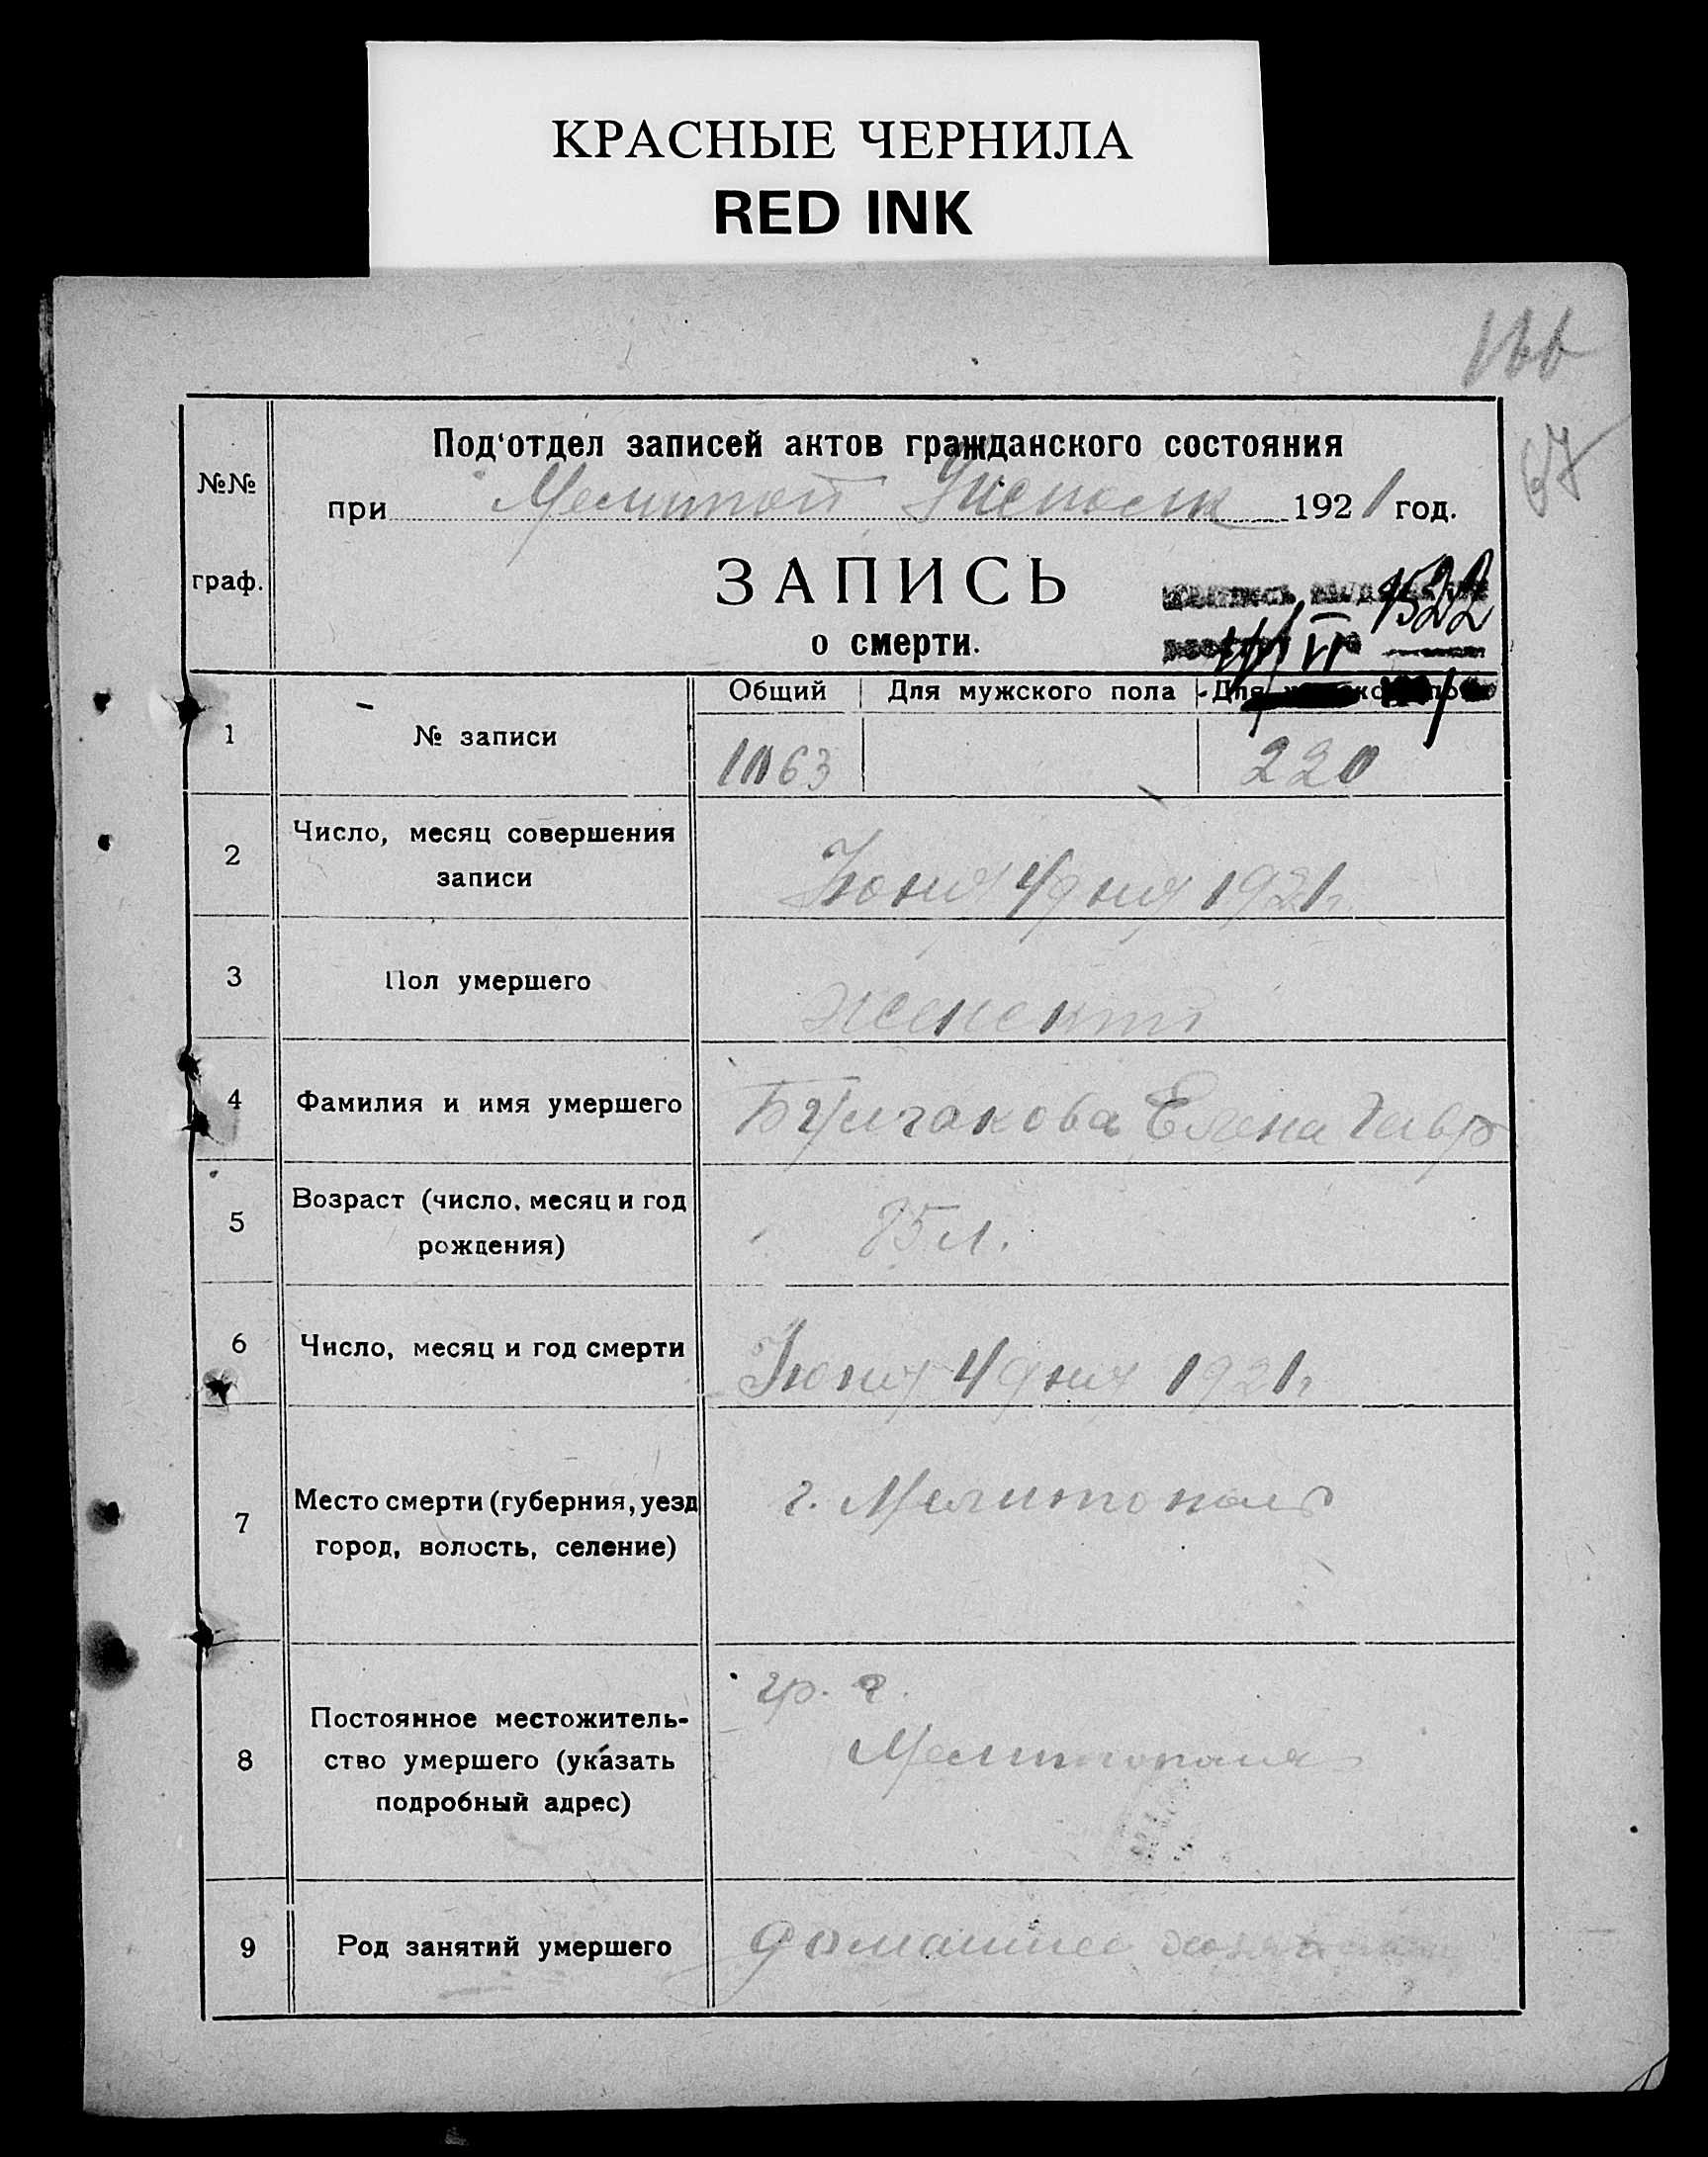 КРАСНЫЕ ЧЕРНИЛА
RED INK
166
67
Под‘отдел записей актов гражданского состояния
№№
при Мелитоп 1921 год.
граф.
ЗАПИСЬ
1522
о смерти.
Общий Для мужского пола Для
1 № записи
1063 220
2 Число, месяц совершения
записи
Июня 4 дня 1921 г
3 Пол умершего
женский
4 Фамилия и имя умершего Булгакова Елена Гавр
5 Возраст (число, месяц и год
рождения)
85 л.
6 Число, месяц и год смерти Июня 4 дня 1921 г
7 Место смерти (губерния, уезд
город, волость, селение)
г. Мелитополь
8 Постоянное местожитель-
ство умершего (указать
подробный адрес)
гр. г.
Мелитополя
9 Род занятий умершего домашнее